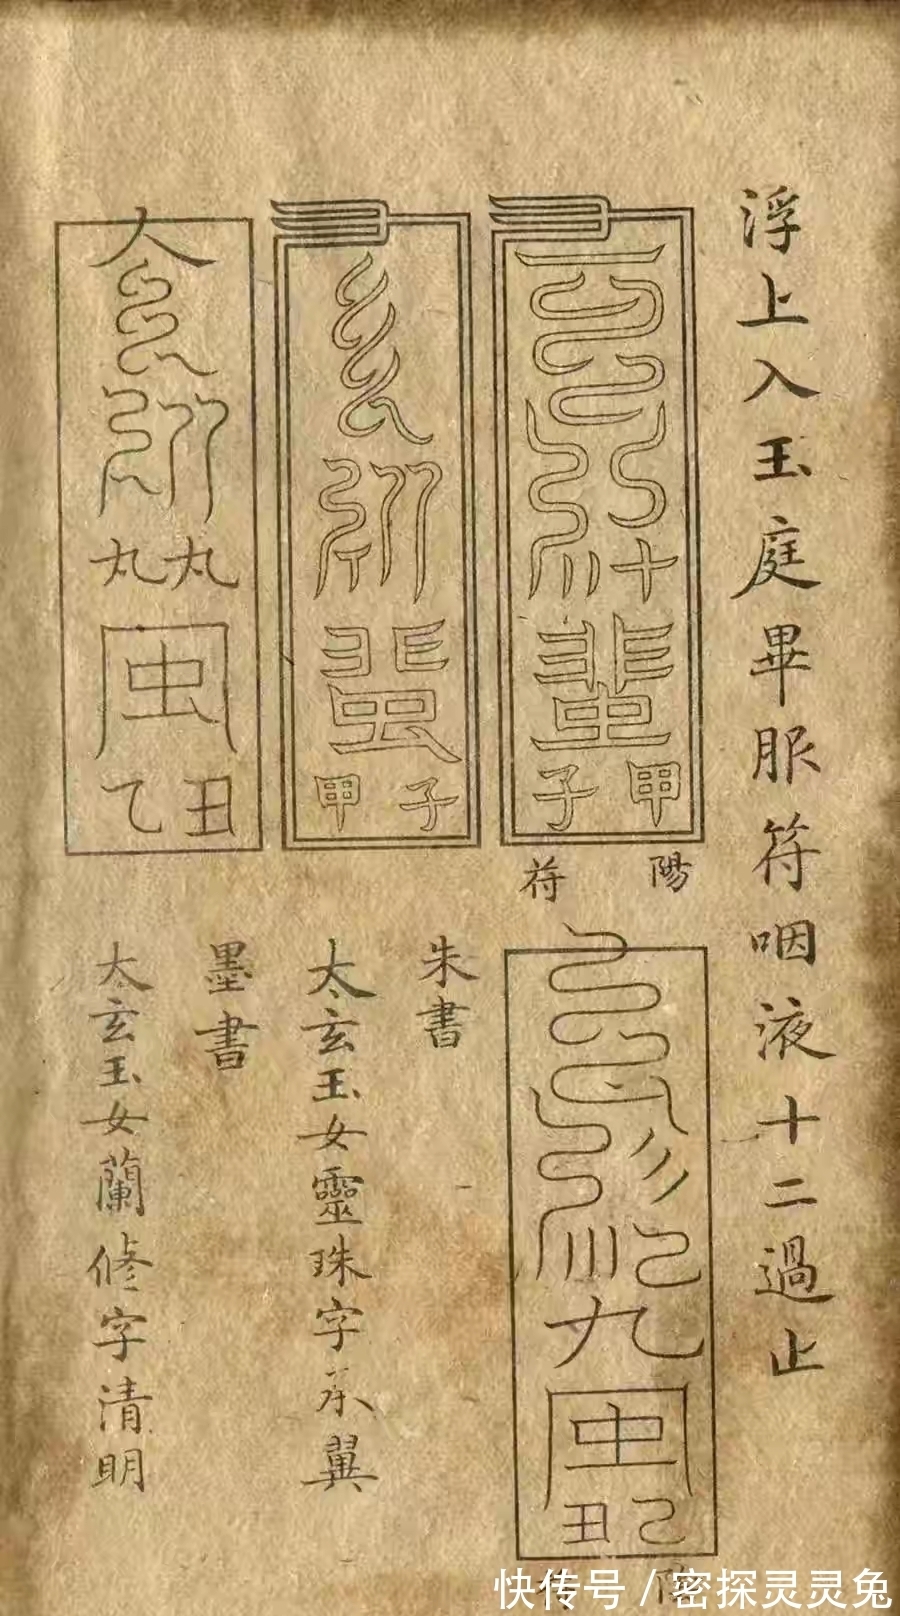 浮上入玉庭畢服符咽液十二過止
甲子
陽符
九
己丑
朱書
甲子
太玄玉女靈珠字承翼
墨書
丸丸
乙丑
太玄玉女蘭修字清明
快传号/密探灵灵兔